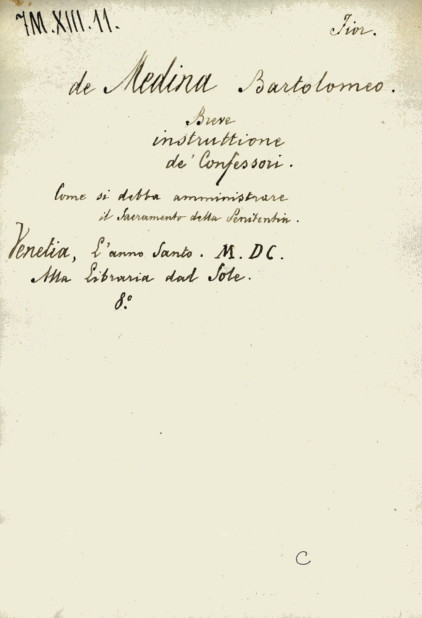 7M.XIII.11.
Fior.
de Medina Bartolomeo.
Breve
instruttione
de' Confessori.
Come si debba amministrare
il Sacramento della Penitentia.
Venetia, L'anno Santo. M.DC.
Alla Libraria dal Sole.
8.°
C